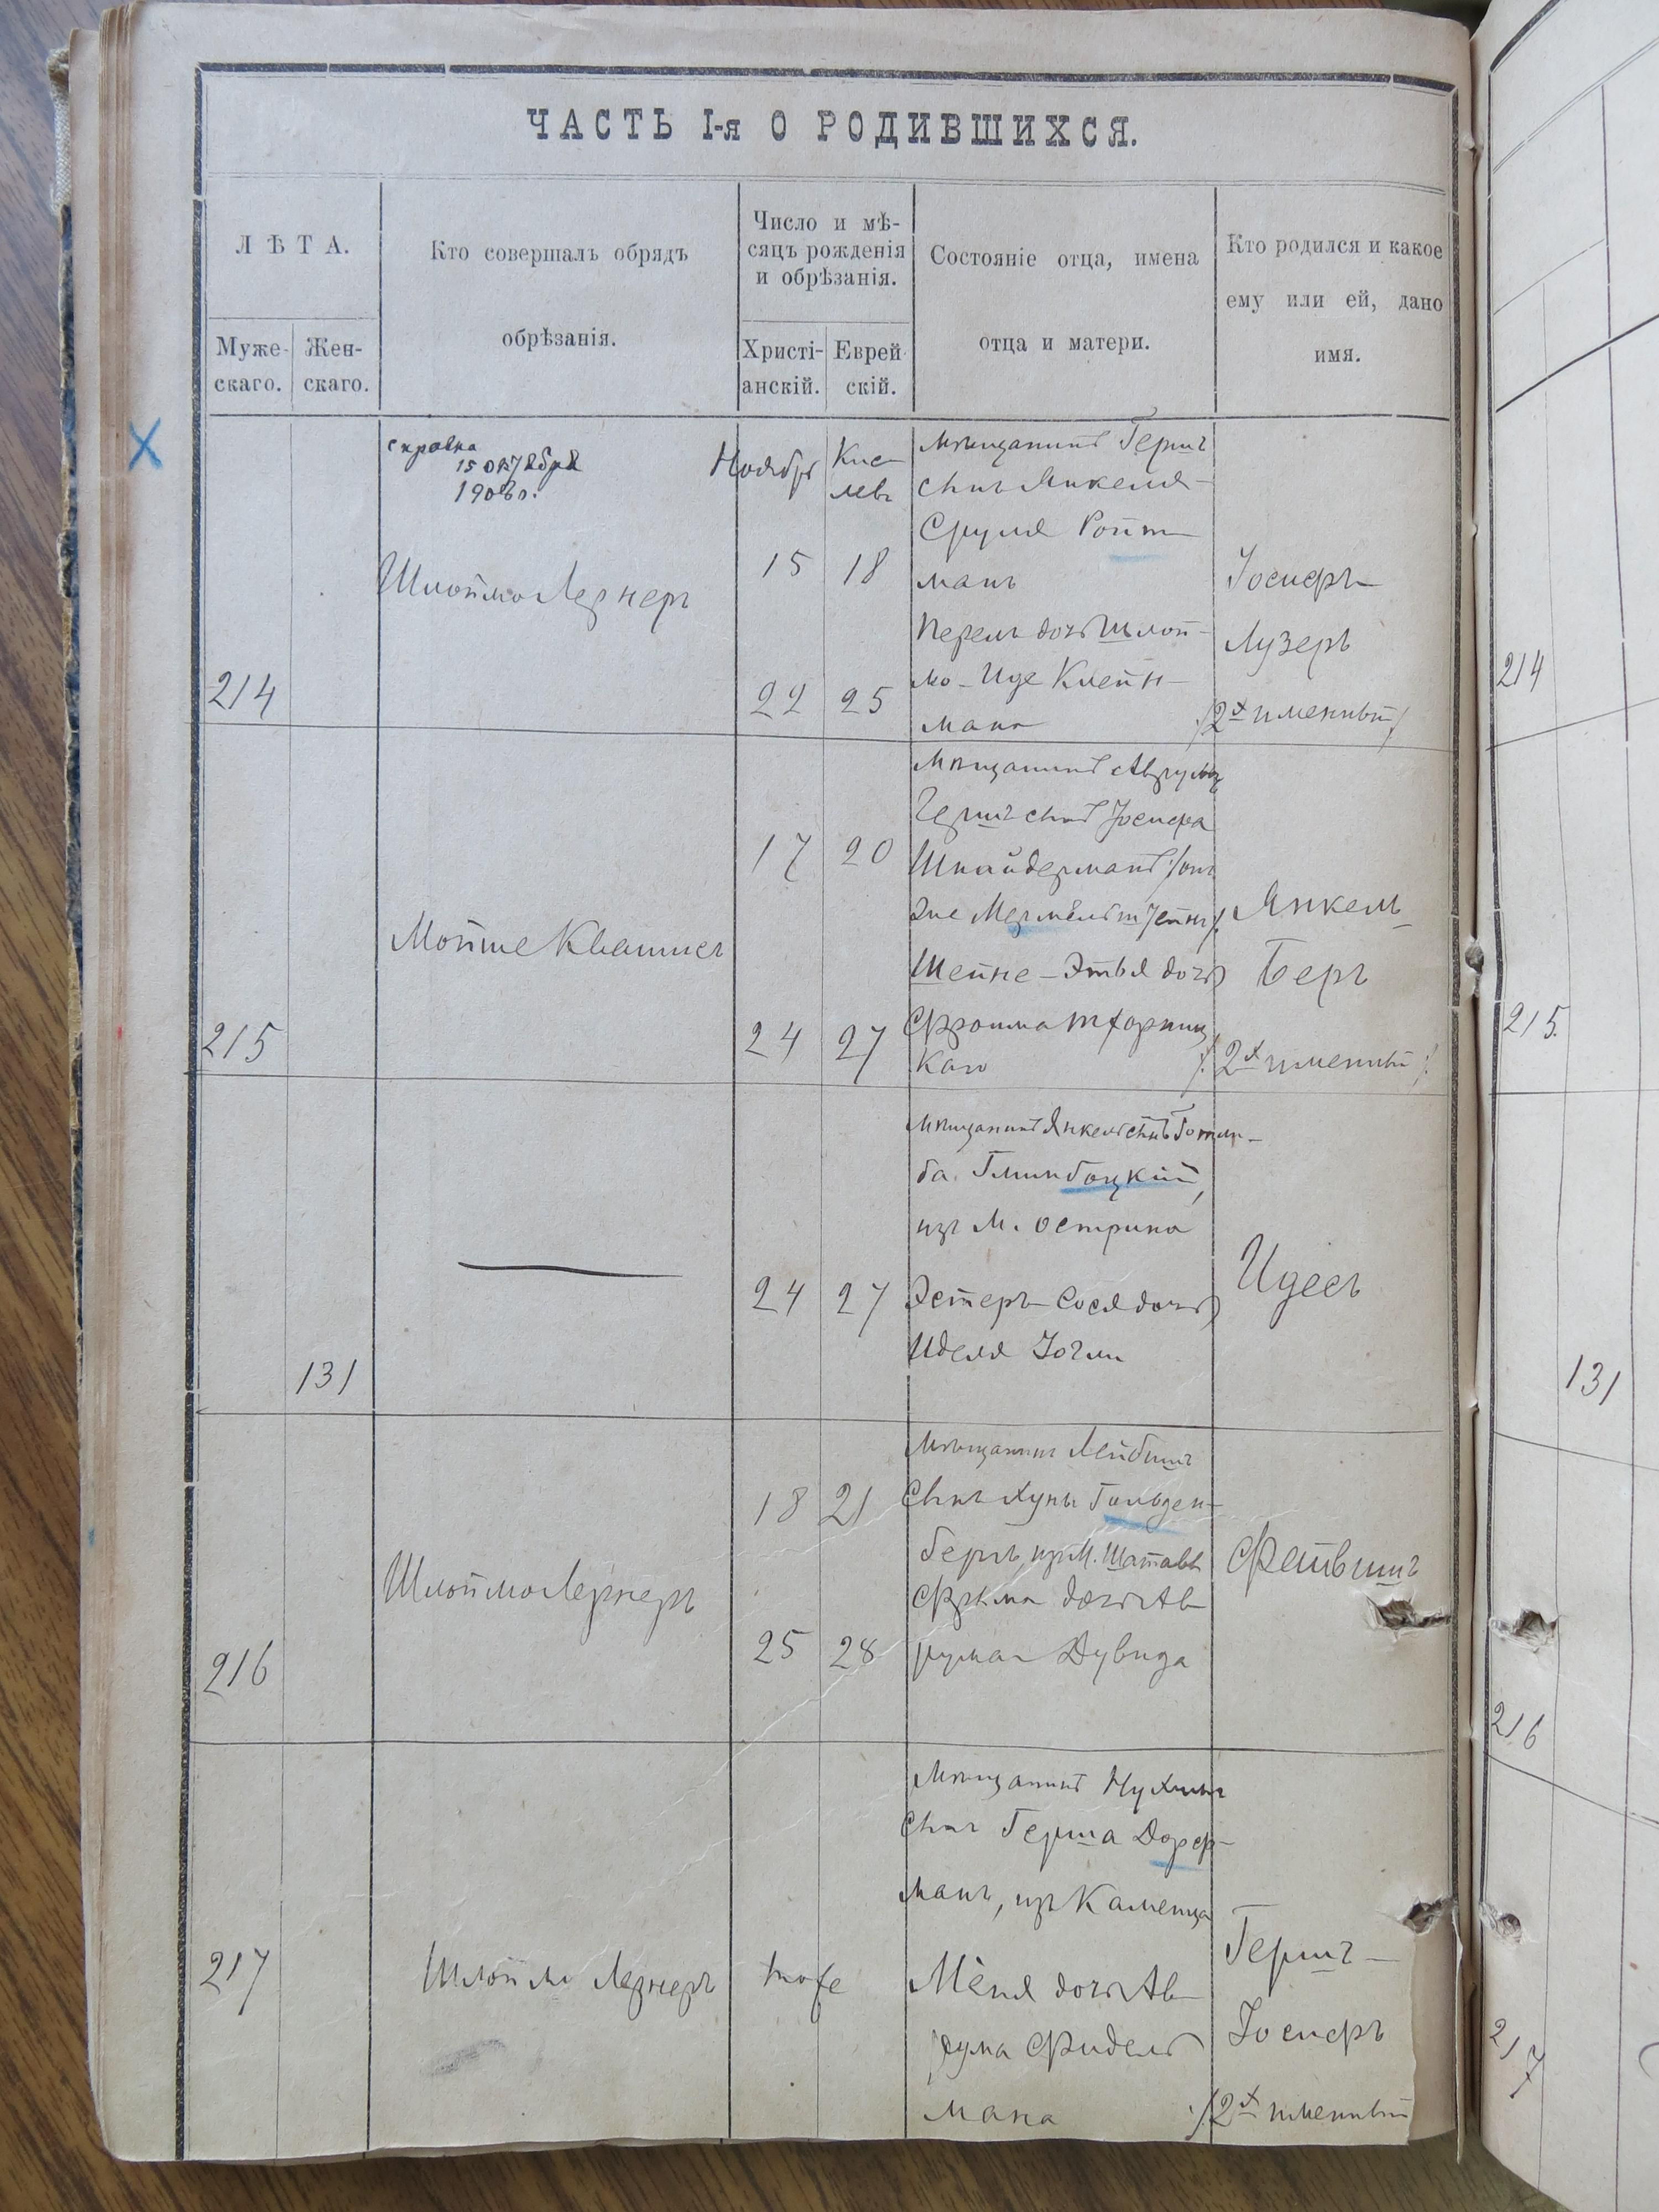 ЧАСТЬ I-я О РОДИВШИХСЯ.
ЛѢТА.
Муже-
скаго.
Жен-
скаго.
Кто совершалъ обрядъ
обрѣзанія.
Число и мѣ-
сяцъ рожденія
и обрѣзанія.
Христі-
анскій.
Еврей-
скій.
Состояніе отца, имена
отца и матери.
Кто родился и какое
ему или ей, дано
имя.
справка
15 октября
1908 г.
214
Шлоймо Лернеръ
Ноябрь
Кис-
левъ
15 18
22 25
Мѣщанинъ Гершъ
сынъ Янкеля-
Сруля Ройт-
манъ
Перель дочь Шлой-
мо-Иде Клейн-
мана
Іосифъ-
Лузеръ
/2х именный/
215
Мойше Квашисъ
17 20
24 27
Мѣщанинъ Аврумъ
Гершъ сынъ Іосифа
Шнайдерманъ
Шейне-Этья дочь
Фроима
каго
Янкель-
Беръ
/2х именный/
131
24 27
Мѣщанинъ Янкель сынъ Готли-
ба
изъ м. Острина
Эстеръ-Сося дочь
Иделя
Идесъ
216
Шлоймо Лернеръ
18 21
25 28
Мѣщанинъ Лейбишъ
сынъ Хуны Гольден-
бергъ, изъ м. Шатавы
Фрыма дочь Ав-
рума Дувида
Фейвишъ
217
Шлоймо Лернеръ
тоже
Мѣщанинъ Нухимъ
сынъ Герша Дорф-
манъ, изъ Каменца
Меня дочь Ав-
рума Фидель-
мана
Гершъ-
Іосифъ
/2х именный
214
215
131
216
217